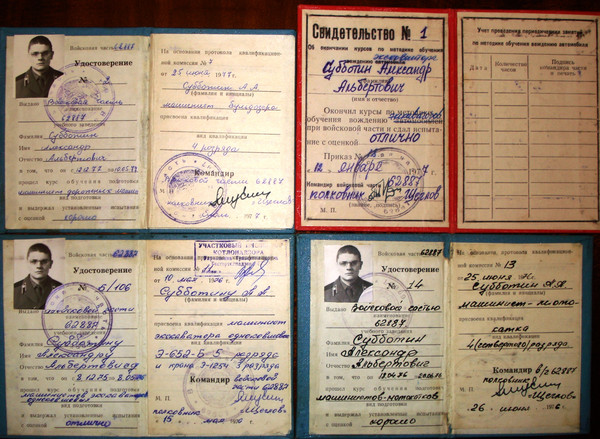 Войсковая часть 62887
Удостоверение
№ 2
Выдано Войсковой частью
62887
учебного заведения
Фамилия Субботин
Имя Александр
Отчество Альбертович
в том, что он
прошел курс обучения подготовки
вид подготовки
и выдержал установленные испытания
с оценкой хорошо
На основании протокола квалификацион-
ной комиссии № 7
от 25 июня 1977 г.
Субботин А.А.
(фамилия и инициалы)
машинист бульдозера
присвоена квалификация
вид квалификации
4 разряда
Командир
войсковой части 62887
полковник
(Щеглов)
М. П.
Свидетельство № 1
Об окончании курсов по методике обучения
вождению
Субботин Александр
Альбертович
(имя и отчество)
Окончил курсы по методике
обучения вождению
при войсковой части и сдал испыта-
ние с оценкой отлично
Приказ № 13
12 января 1977
Командир войсковой части 62887
полковник Щеглов
М. П.
Учет проведения периодических занятий
по методике обучения вождению автомобиля
Дата
Количество
часов
Подпись
командира части
и печать
Войсковая часть 62887
Удостоверение
№ 6/106
Выдано войсковой части
62887
учебного заведения
Фамилия Субботину
Имя Александру
Отчество Альбертовичу
в том, что он с
прошел курс обучения подготовки
машинистов экскаваторов
одноковшовых
вид подготовки
и выдержал установленные испытания
с оценкой отлично
УЧАСТКОВЫЙ
КОТЛОНАДЗОРА
На основании протокола квалификацион-
ной комиссии №
10 мая 1976 г.
Субботину А.А
(фамилия и инициалы)
присвоена квалификация машинист
экскаватора одноковшового
вид квалификации
Э-652-Б-5 разряда
и крана Э-254 3 разряда
Командир войсковой
части 62887
М. П.
полковник (Щеглов)
15 мая 1976 г.
Войсковая часть 62887
Удостоверение
№ 14
Выдано Войсковой частью
62887
учебного заведения
Фамилия Субботин
Имя Александр
Отчество Альбертович
в том, что он с
прошел курс обучения подготовки
машинистов-катков
вид подготовки
и выдержал установленные испытания
с оценкой хорошо
На основании протокола квалификацион-
ной комиссии № 13
25 июня
Субботин А.А.
(фамилия и инициалы)
машинист мото-
присвоена квалификация
катка
вид квалификации
4 (четвертого) разряда
Командир в/ч 62887
полковник
(Щеглов)
М. П.
26 июня 1976